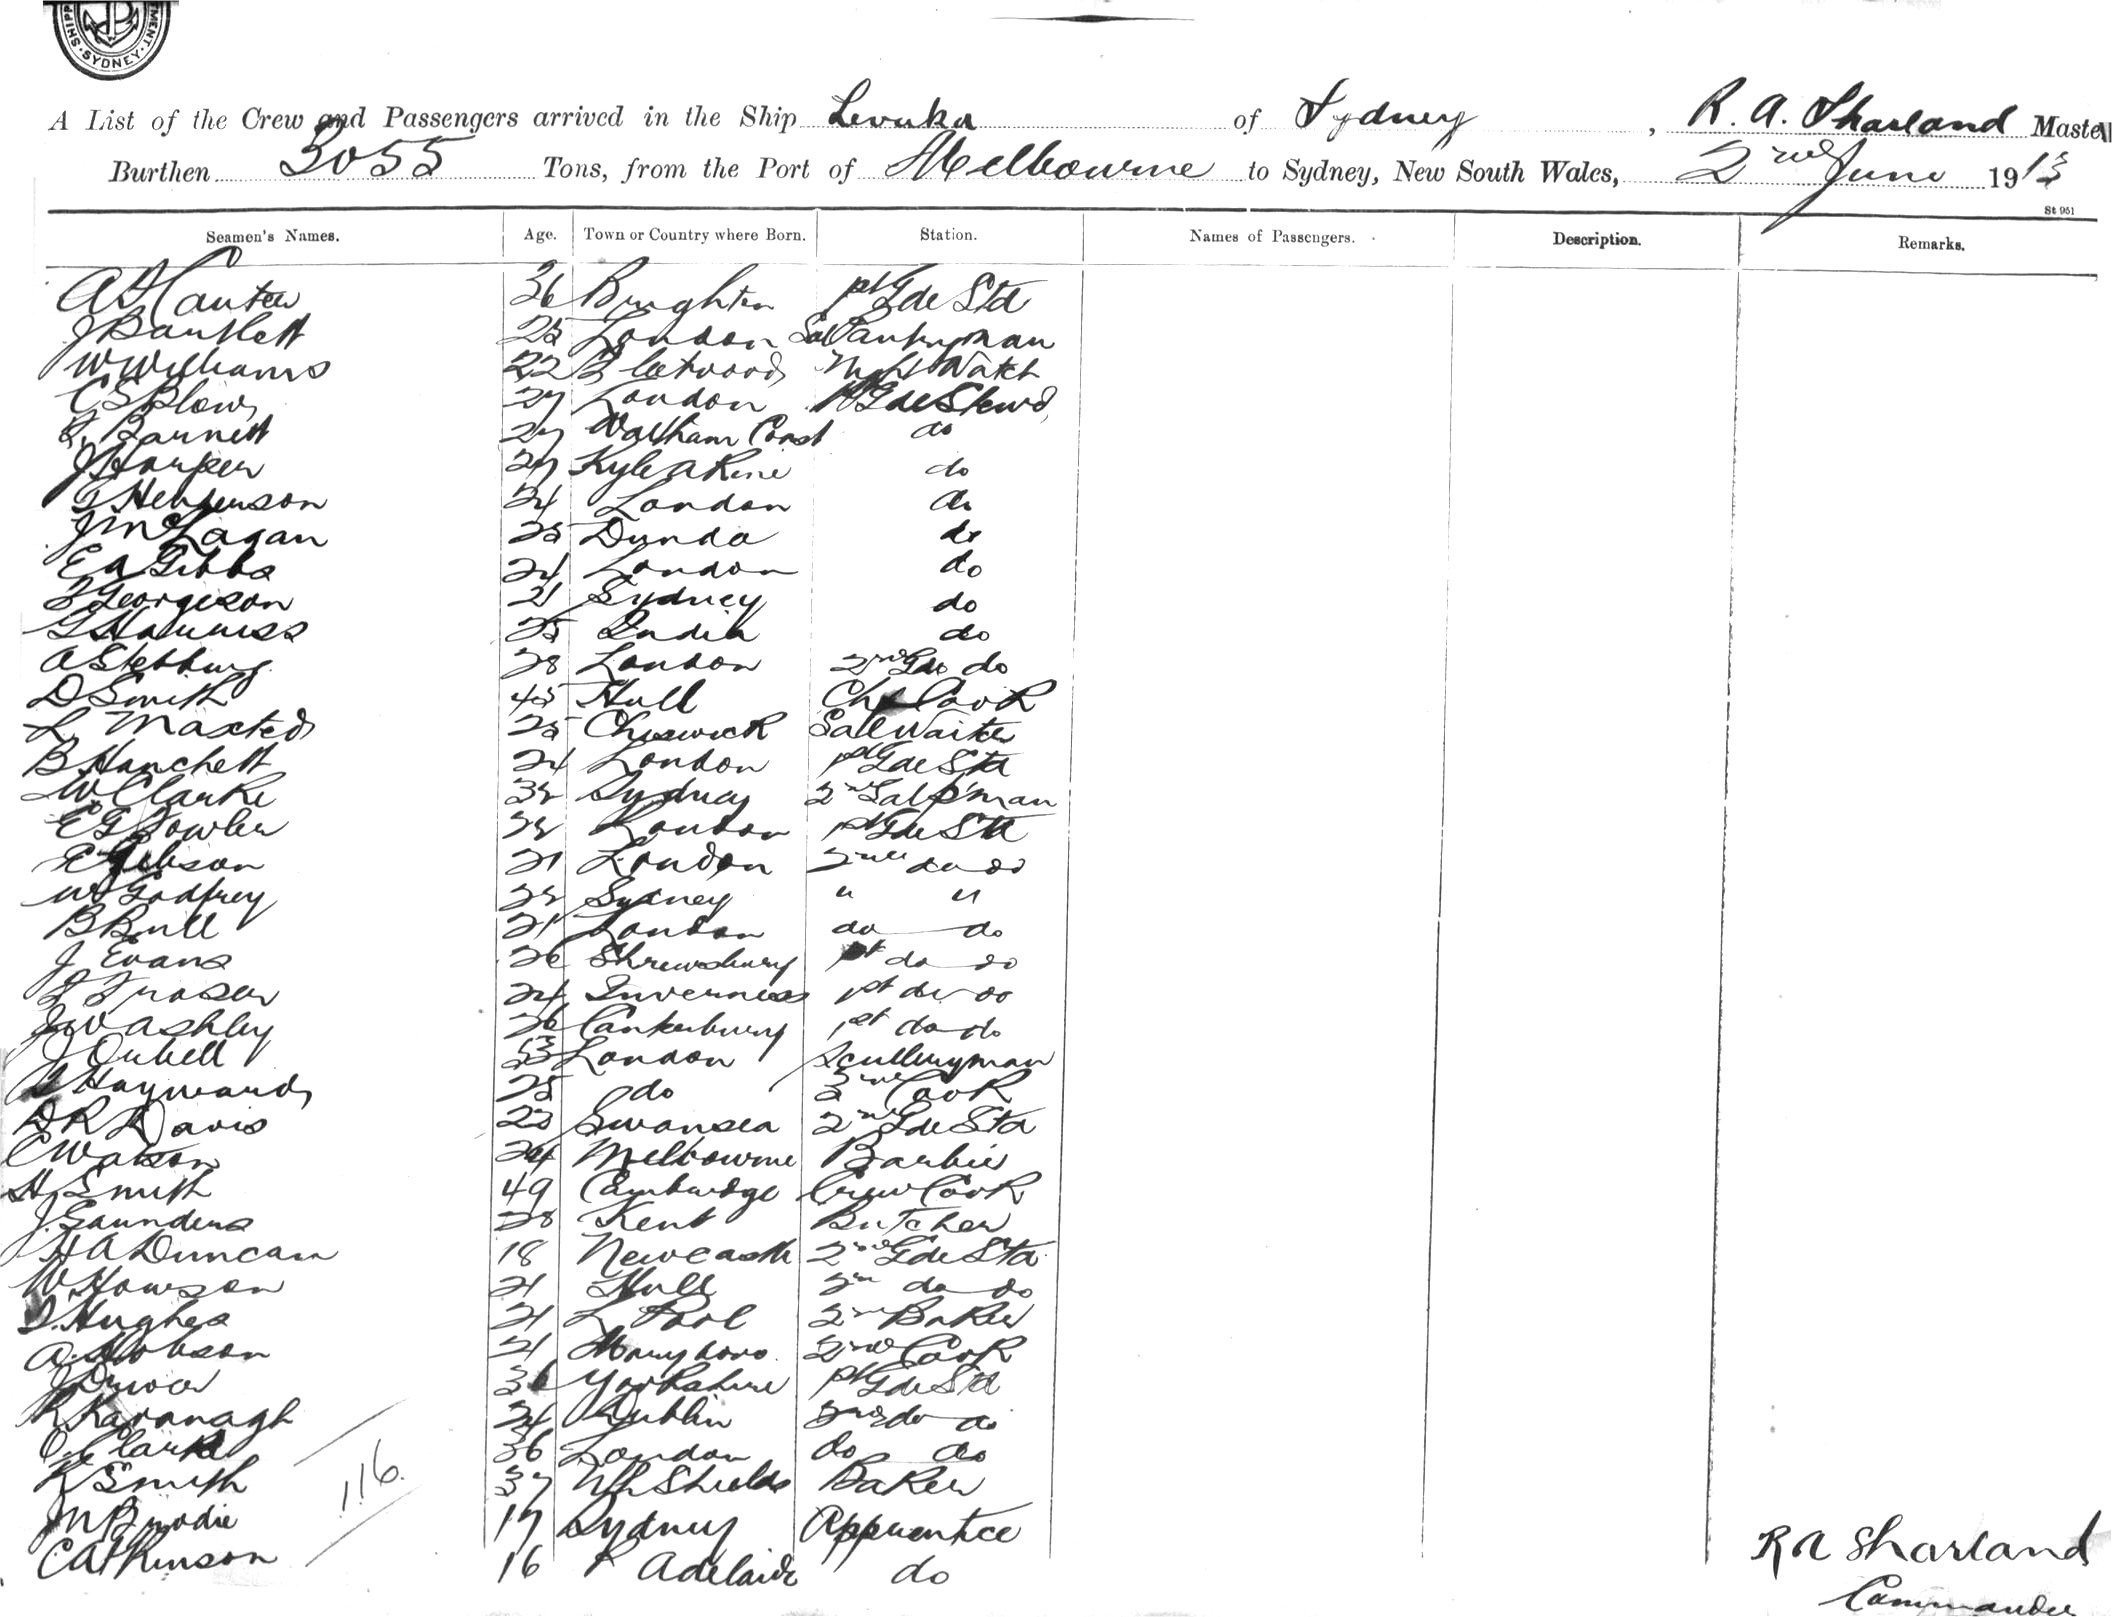 SHIPP MENT. SYDNEY
A List of the Crew and Passengers arrived in the Ship Levuka of Sydney, R. A. Sharland Master
Burthen 3055 Tons, from the Port of Melbourne to Sydney, New South Wales, 2nd June 1913
St 951
Seamen's Names. Age. Town or Country where Born. Station. Names of Passengers. Description. Remarks.
36 Brighton 1st Gde Std
J Bartlett 25 London Sal Pantryman
W Williams 22 Fleetwood Night Watch
C S Blows 27 London 1st Gde Stewd
Barnett 27 Waltham Cross do
J Harper 27 Kyleakine do
Henderson 24 London do
J McLagan 25 Dunda do
E A Gibbs 24 London do
Georgeson 21 Sydney do
25 India do
A Stebbing 28 London 2nd Gde do
D Smith 45 Hull Chf Cook
L Maxted 25 Chiswick Sal Waiter
B Hanchett 24 London 1st Gde Std
W Clarke 32 Sydney 2nd Sal P'man
E G Fowler London 1st Gde Std
E Gibson 21 London 2nd do do
W Godfrey Sydney " "
B Bull 21 London do do
J Evans 26 Shrewsbury 1st do do
Fraser 24 Inverness 1st do do
J W Ashley 26 Canterbury 1st do do
J 53 London Sculleryman
Hayward 28 do Cook
D R Davis 23 Swansea 2nd Gde Std
C Watson 24 Melbourne Barber
H Smith 49 Cambridge Crew Cook
J. Saunders 28 Kent Butcher
H A Duncan 18 Newcastle 2nd Gde Std
W Howson 21 Hull 2nd do do
Hughes 21 L Pool 2nd Baker
A. Hobson 21 Maryboro 2nd Cook
J Driver 36 Yorkshire 1st Gde Std
R Kavanagh 24 Dublin 2nd do do
O. Clark 36 London do do
R Smith 37 Nth Shields Baker
116.
M Brodie 17 Sydney Apprentice
C Atkinson 16 P Adelaide do
R A Sharland
Commander